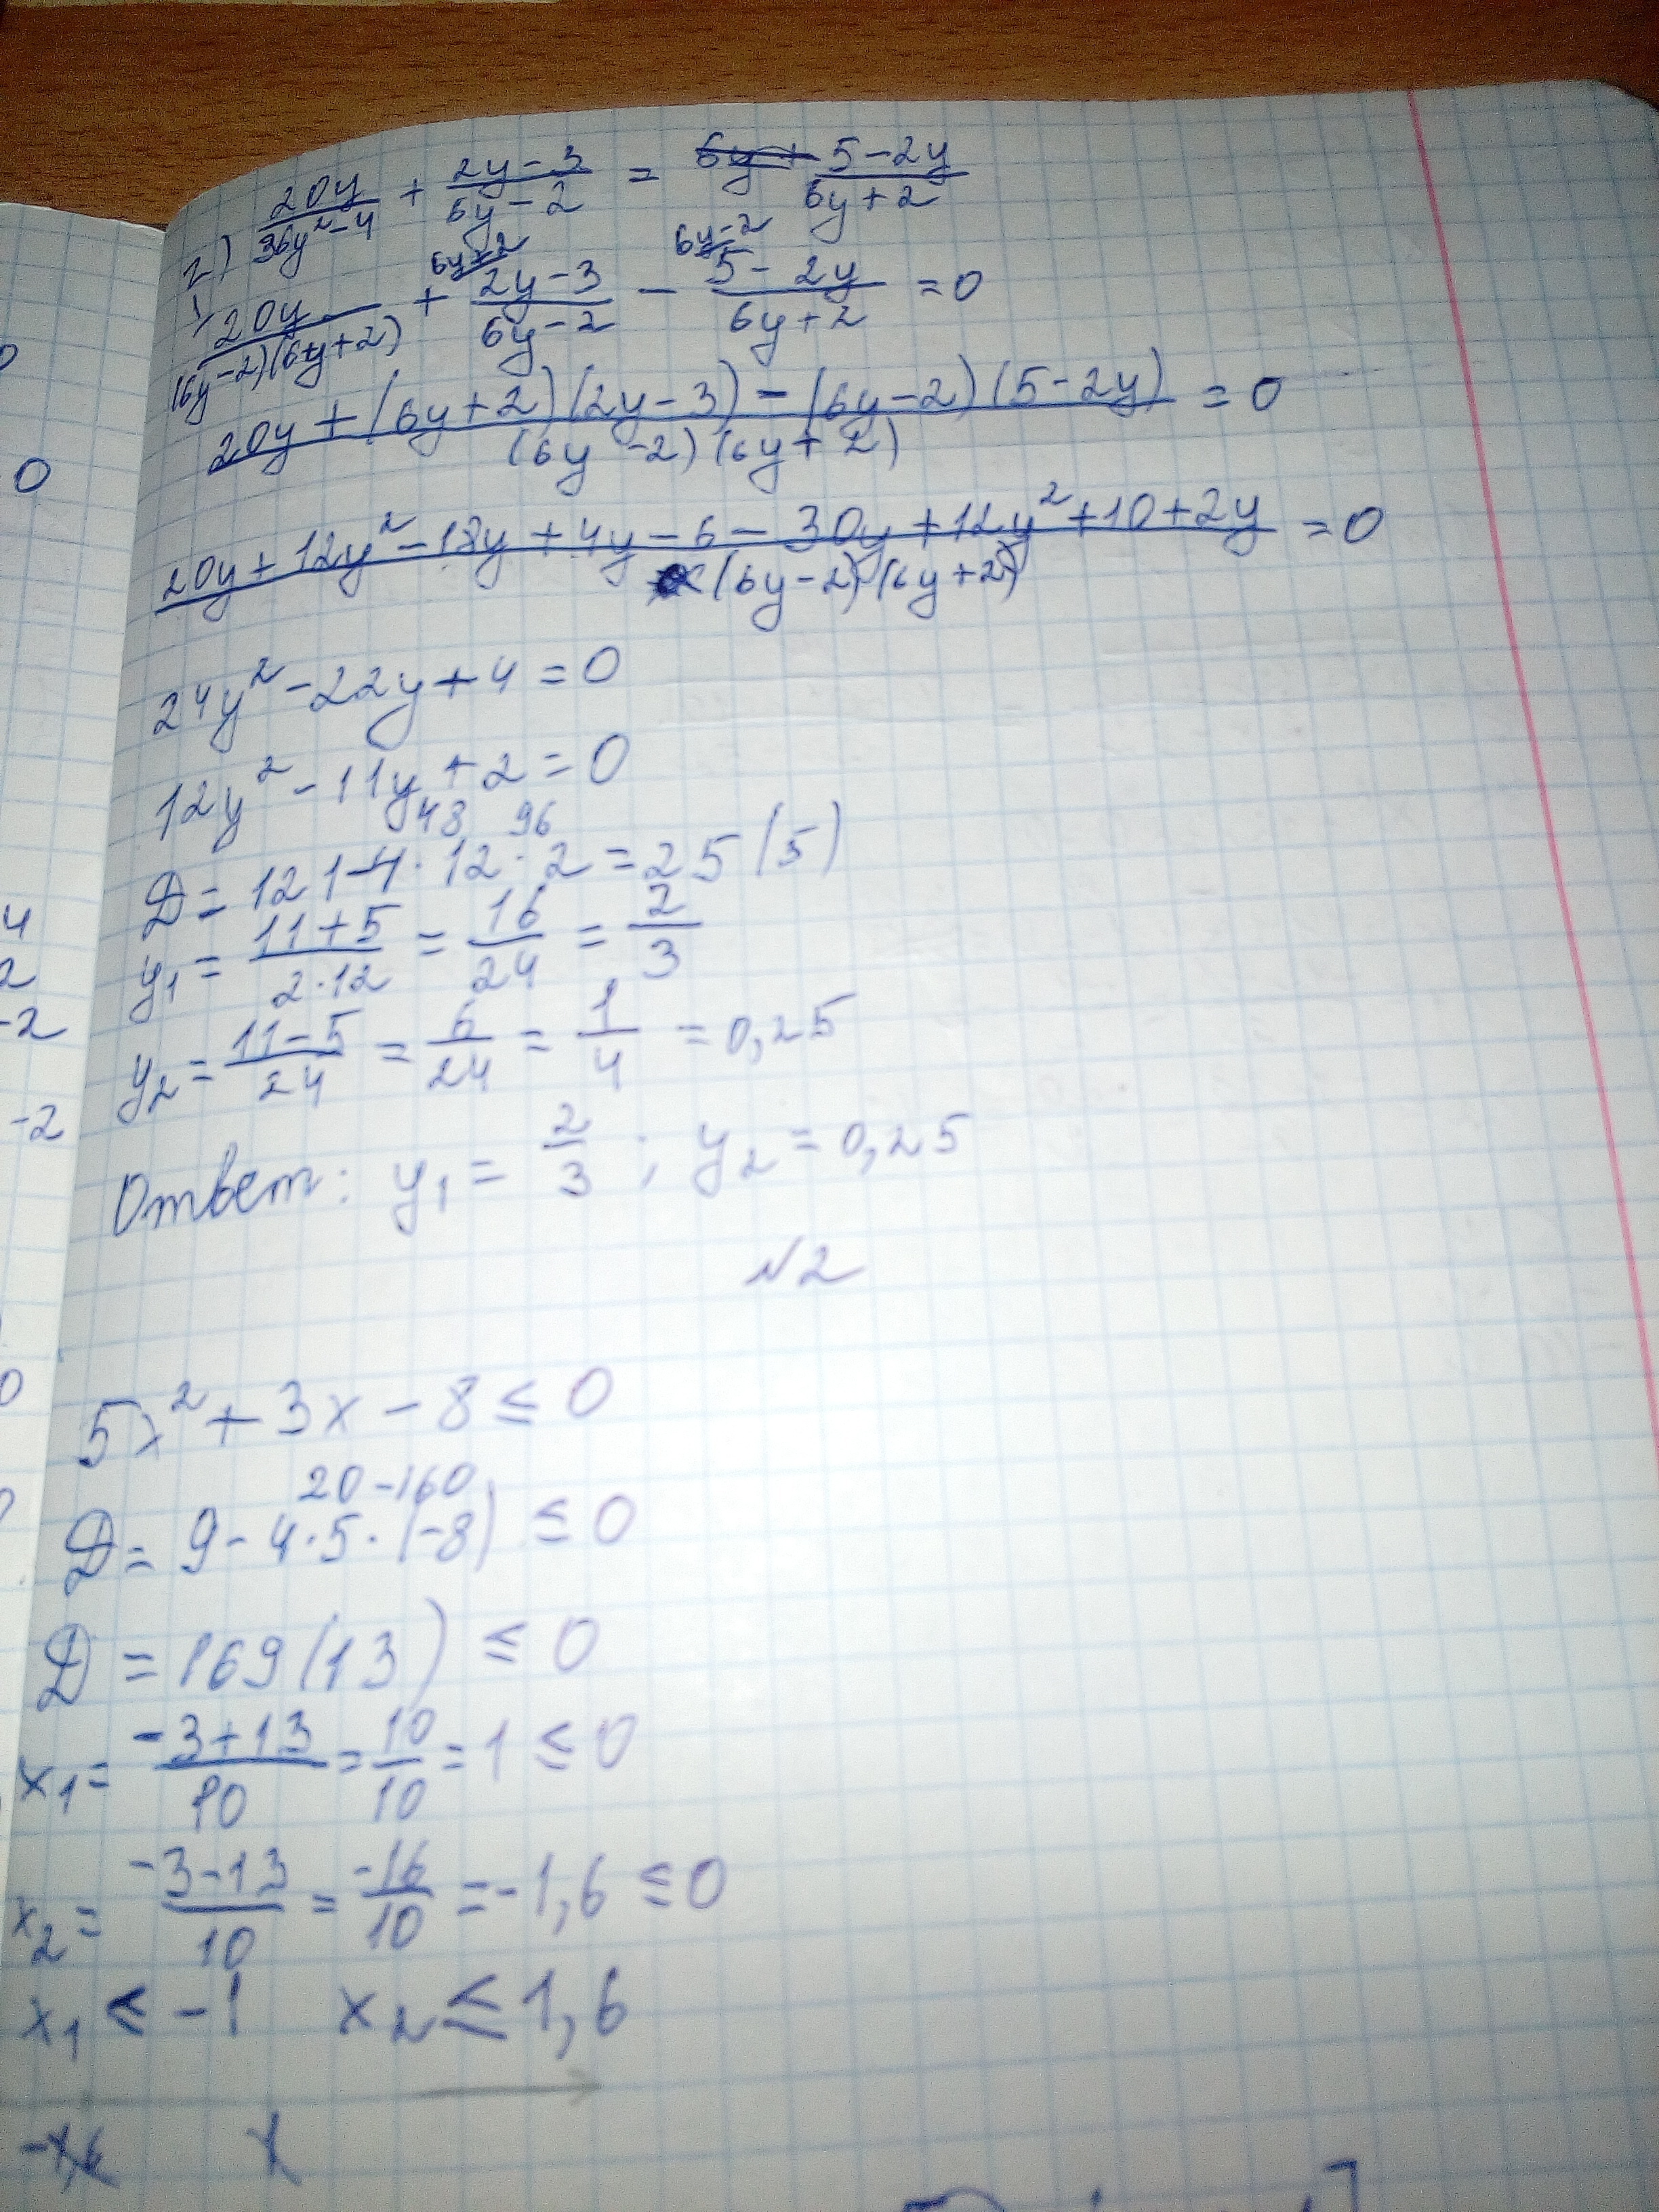 2) 20y/(36y² - 4) + (2y - 3)/(6y - 2) = (5 - 2y)/(6y + 2)
20y/((6y - 2)(6y + 2)) + (2y - 3)/(6y - 2) - (5 - 2y)/(6y + 2) = 0
(20y + (6y + 2)(2y - 3) - (6y - 2)(5 - 2y))/((6y - 2)(6y + 2)) = 0
(20y + 12y² - 18y + 4y - 6 - 30y + 12y² + 10 + 2y)/((6y - 2)(6y + 2)) = 0
24y² - 22y + 4 = 0
12y² - 11y + 2 = 0
48 96
D = 121 - 4 · 12 · 2 = 25 (5)
y₁ = (11 + 5)/(2 · 12) = 16/24 = 2/3
y₂ = (11 - 5)/24 = 6/24 = 1/4 = 0,25
Ответ: y₁ = 2/3 ; y₂ = 0,25
№2
5x² + 3x - 8 ≤ 0
20 -160
D = 9 - 4 · 5 · (-8) ≤ 0
D = 169 (13) ≤ 0
x₁ = (-3 + 13)/10 = 10/10 = 1 ≤ 0
x₂ = (-3 - 13)/10 = -16/10 = -1,6 ≤ 0
x₁ ≤ -1 x₂ ≤ 1,6